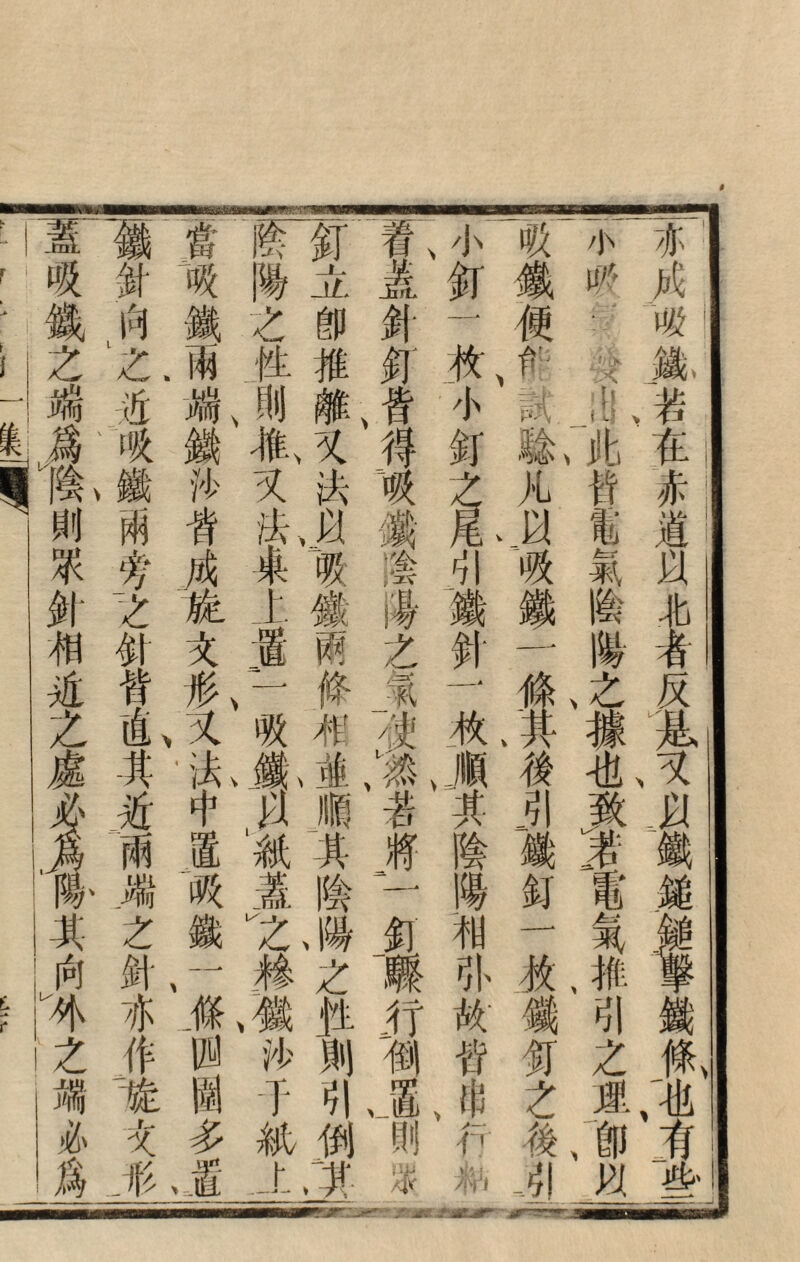 亦成吸鐵若在赤道以北者反是又以鐵鎚鎚擊鐵條也有些
小吸氣發出此皆電氣陰陽之據也致若電氣推引之理卽以
吸鐵便能試騐凡以吸鐵一條其後引鐵釘一枚鐵釘之後引
小釘一枚小釘之尾引鐵針一枚順其陰陽相引故皆串行粘
着蓋針釘皆得吸鐵陰陽之氣使然若將一釘驟行倒置則眾
釘立卽推離又法以吸鐵兩條相並順其陰陽之性則引倒其
陰陽之性則推又法桌上置一吸鐵以紙蓋之糝鐵沙于紙上
當吸鐵兩端鐵沙皆成旋文形又法中置吸鐵一條四圍多置
鐵針向之近吸鐵兩旁之針皆直其近兩端之針亦作旋文形
蓋吸鐵之端爲陰則眾針相近之處必爲陽其向外之端必爲
一集